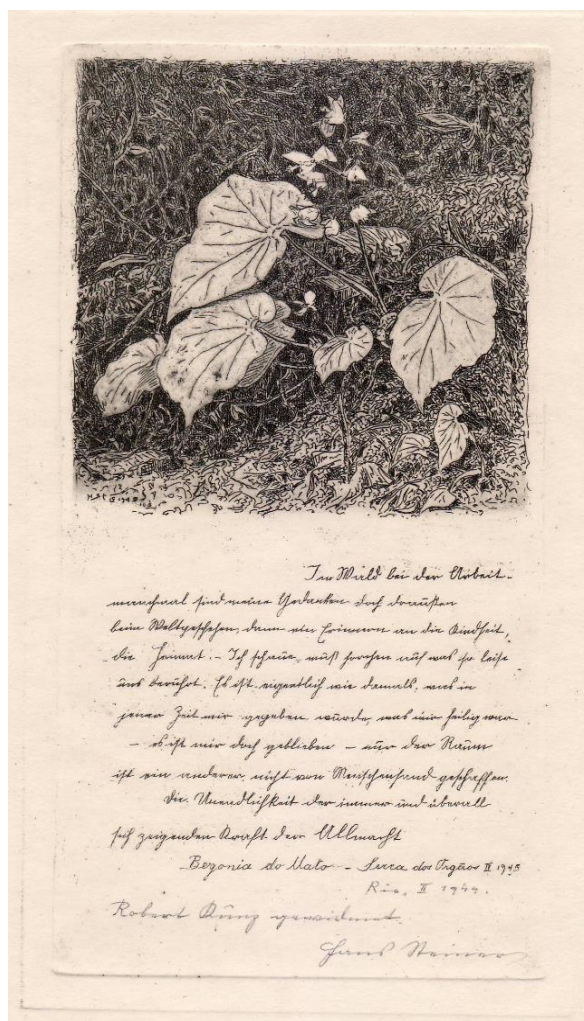 Im Wald bei der Arbeit -
manchmal sind meine Gedanken doch draußen
beim Weltgeschehen, dann ein Erinnern an die Kindheit,
die Heimat. - Ich schaue, muß horchen auf was so leise
uns berührt. Es ist eigentlich wie damals, was in
jener Zeit mir gegeben wurde, was mir heilig war
- es ist mir doch geblieben - nur der Raum
ist ein anderer, nicht von Menschenhand geschaffen.
Die Unendlichkeit der immer und überall
sich zeigenden Kraft der Allmacht
Begonia do Mato - Serra dos Orgãos II
Rio. II 1944.
Robert Kunz gewidmet.
Hans Steiner